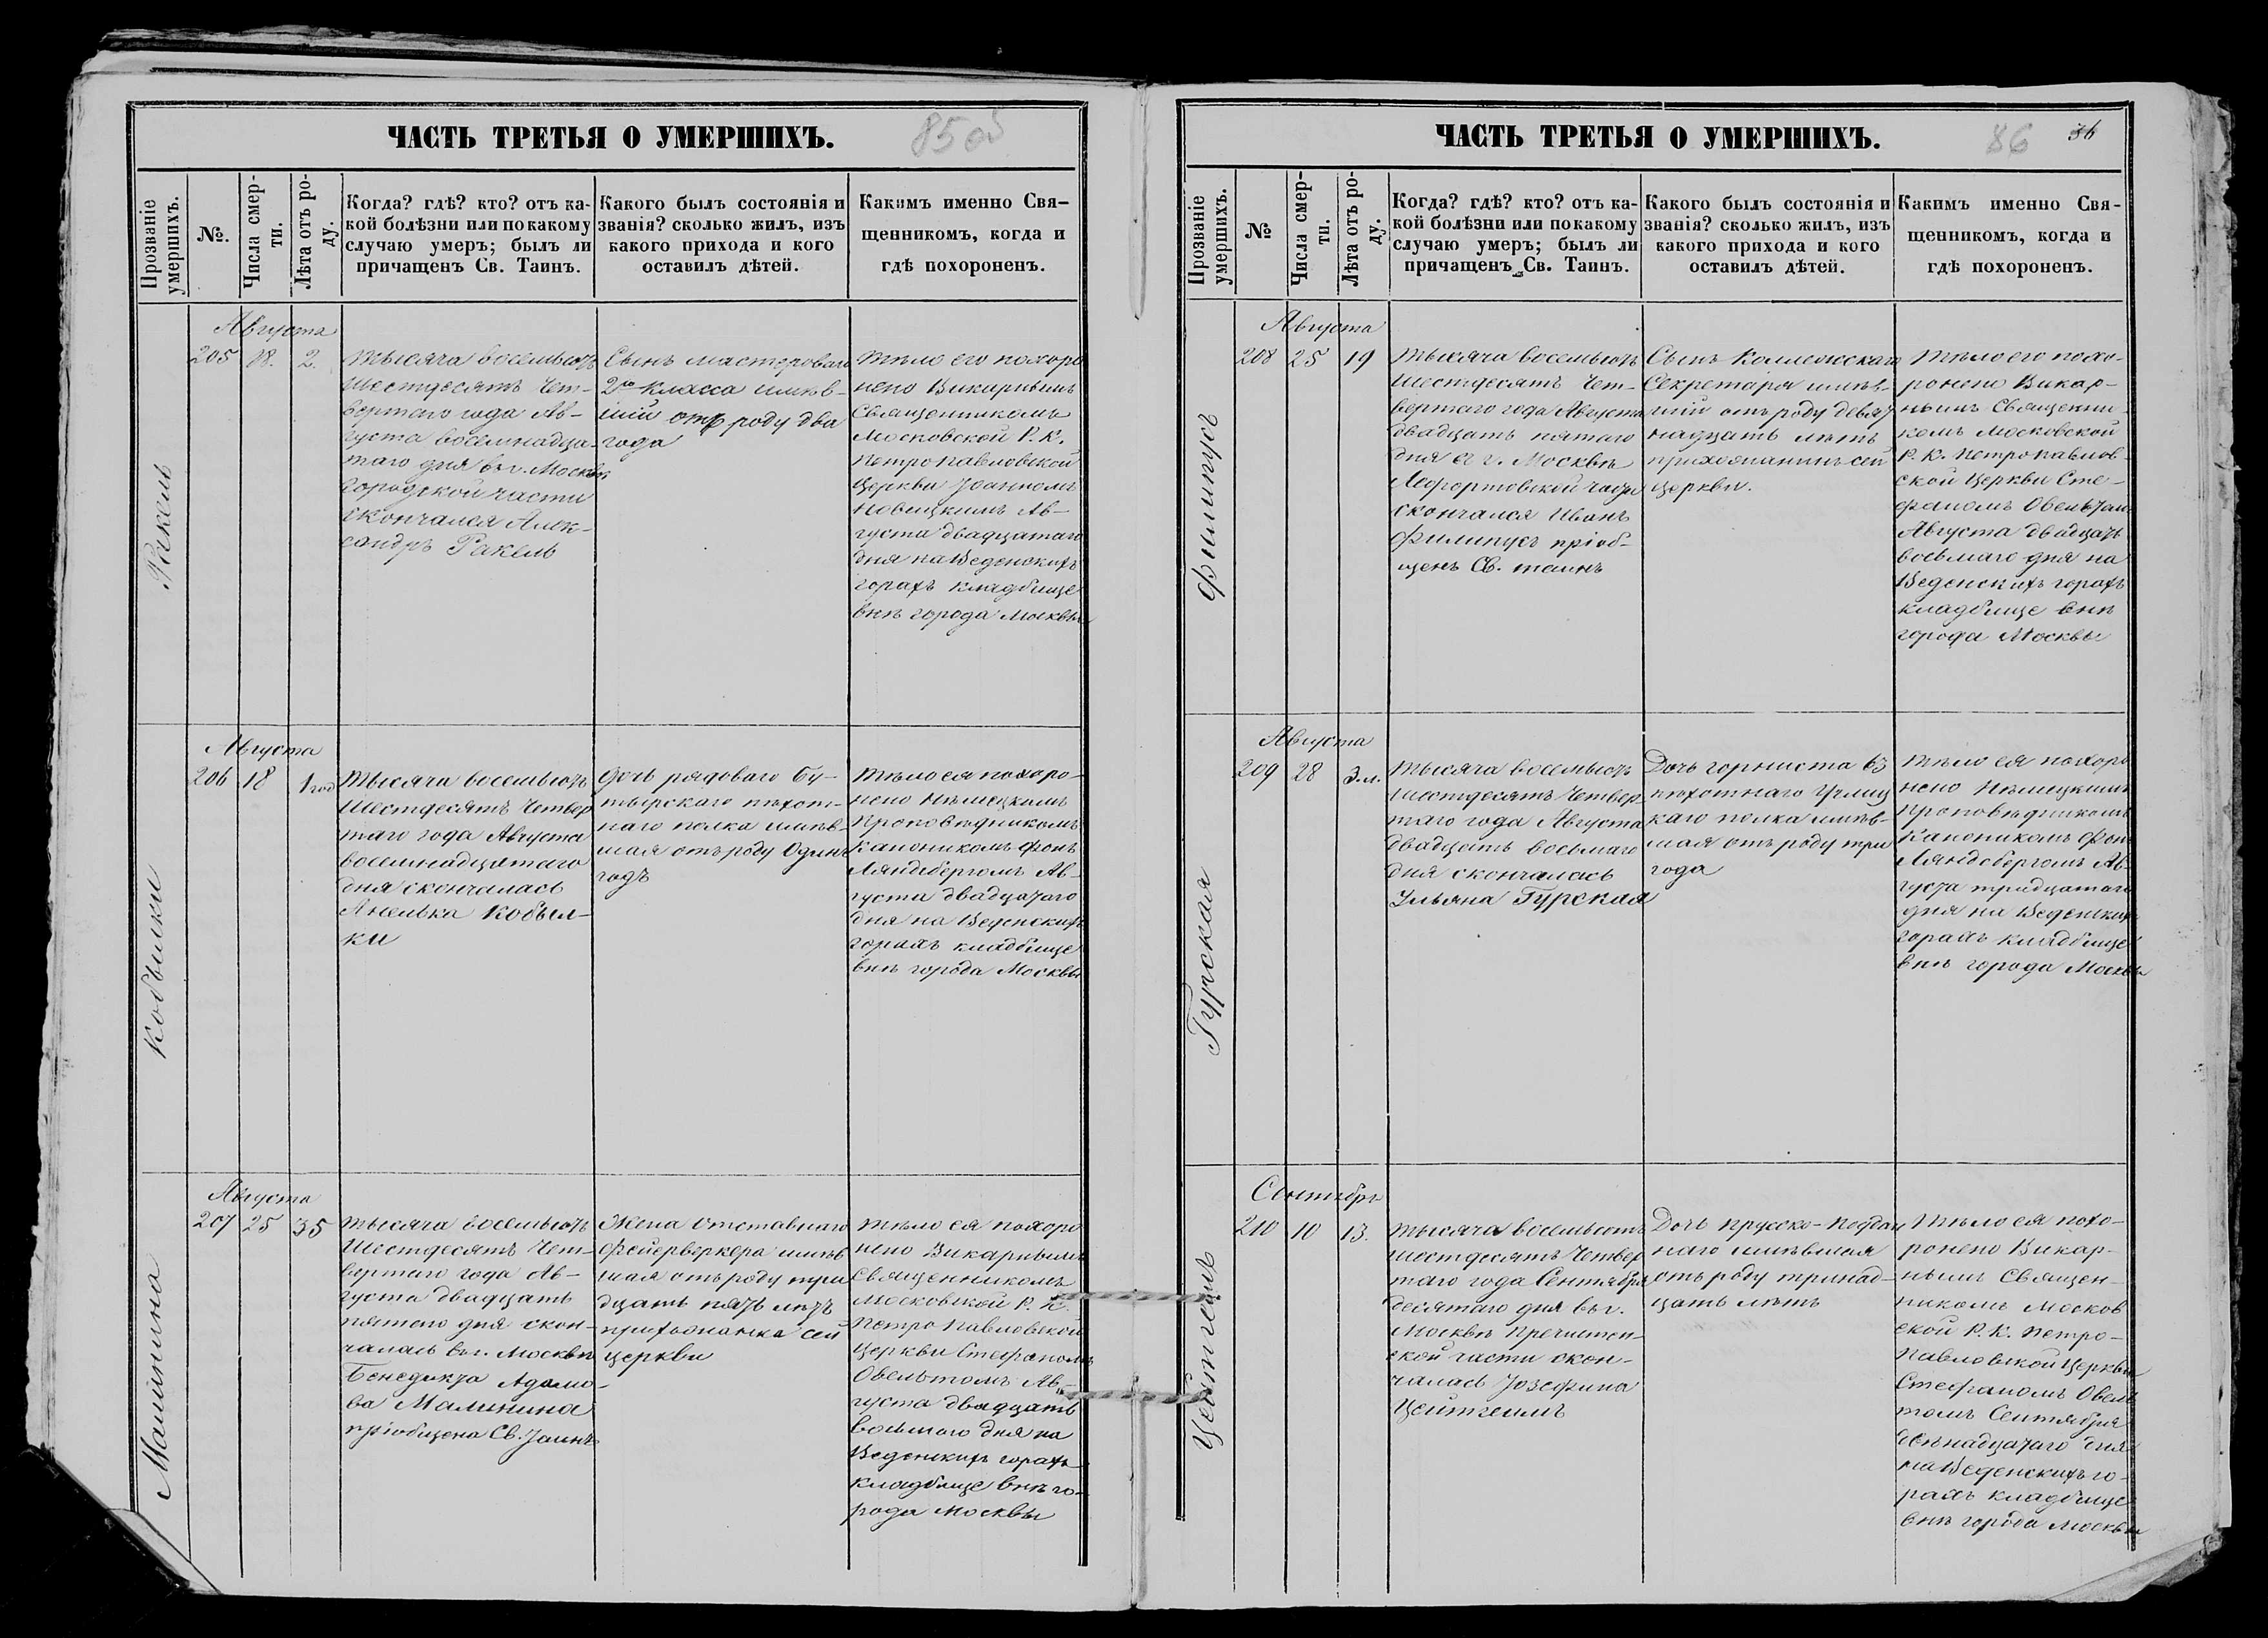 ЧАСТЬ ТРЕТЬЯ О УМЕРШИХЪ.
85 об
Прозваніе умершихъ.
№.
Числа смерти.
Лѣта отъ роду.
Когда? гдѣ? кто? отъ ка-
кой болѣзни или по какому
случаю умеръ; былъ ли
причащенъ Св. Таинъ.
Какого былъ состоянія и
званія? сколько жилъ, изъ
какого прихода и кого
оставилъ дѣтей.
Какимъ именно Свя-
щенникомъ, когда и
гдѣ похороненъ.
Ракель
Августа
205 18. 2.
Тысяча восемьсотъ
шестдесятъ чет-
вертаго года Ав-
густа восемнадца-
таго дня въ г. Москвѣ
городской части
скончался Алек-
сандръ Ракель
Сынъ мастероваго
2го класса имѣв-
шій отъ роду два
года
Тѣло его похоро
нено Викарнымъ
Священникомъ
Московской Р. К.
Петропавловской
Церкви Іоанномъ
Новицкимъ Ав-
густа двадцатаго
дня на Веденскихъ
горахъ кладбище
внѣ города Москвы
Кобылки
Августа
206 18 1 год
Тысяча восемьсотъ
шестдесятъ четвер
таго года Августа
восемнадцатаго
дня скончалась
Анелька Кобыл-
ки
Дочь рядоваго Бу-
тырскаго пѣхот-
наго полка имѣв-
шая отъ роду Одинъ
годъ
Тѣло ея похоро-
нено Нѣмецкимъ
Проповѣдникомъ
Каноникомъ фонъ
Ляндсбергомъ Ав-
густа двадцатаго
дня на Веденскихъ
горахъ кладбище
внѣ города Москвы
Малинина
Августа
207 25 35
Тысяча восемьсотъ
шестдесятъ чет-
вертаго года Ав-
густа двадцать
пятаго дня скон-
чалась въ г. Москвѣ
Бенедикта Адамо-
ва Малинина
пріобщена Св. Таинъ
Жена отставнаго
фейерверкера имѣв
шая отъ роду три
дцать пять лѣтъ
прихожанка сей
церкви
Тѣло ея похоро
нено Викарнымъ
Священникомъ
Московской Р. К.
Петро Павловской
Церкви Стефаномъ
Овельтомъ Ав-
густа двадцать
восьмаго дня на
Веденскихъ горахъ
кладбище внѣ го-
рода Москвы
ЧАСТЬ ТРЕТЬЯ О УМЕРШИХЪ.
86 86
Прозваніе умершихъ.
№
Числа смерти.
Лѣта отъ роду.
Когда? гдѣ? кто? отъ ка-
кой болѣзни или по какому
случаю умеръ; былъ ли
причащенъ Св. Таинъ.
Какого былъ состоянія и
званія? сколько жилъ, изъ
какого прихода и кого
оставилъ дѣтей.
Какимъ именно Свя-
щенникомъ, когда и
гдѣ похороненъ.
Филипусъ
Августа
208 25 19
Тысяча восемьсотъ
шестдесятъ чет-
вертаго года Августа
двадцать пятаго
дня въ г. Москвѣ
Лефортовской части
скончался Иванъ
Филипусъ пріоб-
щенъ Св. таинъ
Сынъ Коллежскаго
Секретаря имѣв-
шій отъ роду девят
надцать лѣтъ
прихожанинъ сей
церкви.
Тѣло его похо-
ронено Викар-
нымъ Священни-
комъ Московской
Р. К. Петропавлов-
ской Церкви Сте-
фаномъ Овельтом
Августа двадцать
восьмаго дня на
Веденскихъ горахъ
кладбище внѣ
города Москвы
Гурская
Августа
209 28 3.л.
Тысяча восемьсотъ
шестдесятъ четвер
таго года Августа
двадцать восьмаго
дня скончалась
Ульяна Гурская
Дочь горниста 63
пѣхотнаго Углиц
каго полка имѣв-
шая отъ роду три
года
Тѣло ея похоро
нено Нѣмецкимъ
Проповѣдникомъ
Каноникомъ фонъ
Ляндсбергомъ Ав-
густа тридцатаго
дня на Веденскихъ
горахъ кладбище
внѣ города Москвы
Цейтгеймъ
Сентябръ
210 10 13.
Тысяча восемьсотъ
шестдесятъ четвер
таго года Сентября
десятаго дня въ г.
Москвѣ Пречистен-
ской части скон-
чалась Іозефина
Цейтгеймъ
Дочь прусско-поддан
наго имѣвшая
отъ роду тринад-
цать лѣтъ
Тѣло ея похо-
ронено Викар-
нымъ Священ-
никомъ Москов
ской Р. К. Петро-
Павловской Церкви
Стефаномъ Овель
томъ Сентября
двѣнадцатаго дня
на Веденскихъ го-
рахъ кладбище
внѣ города Москвы